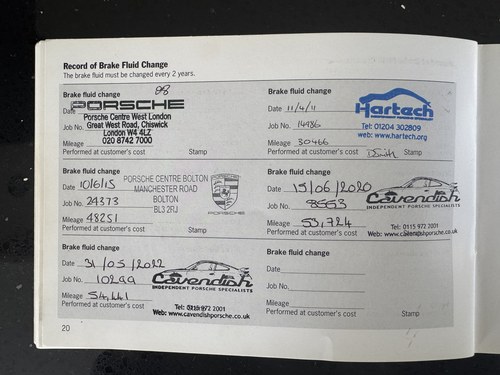 Record of Brake Fluid Change
The brake fluid must be changed every 2 years.
Brake fluid change
Date
PORSCHE
Porsche Centre West London
Job No.
Great West Road, Chiswick
London W4 4LZ
Mileage
020 8742 7000
Performed at customer's cost
Stamp
Brake fluid change
Date 11/4/11
Hartech
Job No. 14486
Tel: 01204 302809
web: www.hartech.org
Mileage 30466
Performed at customer's cost
Brake fluid change
Date 10/6/15
PORSCHE CENTRE BOLTON
MANCHESTER ROAD
Job No. 24373
BOLTON
BL3 2RJ
PORSCHE
Mileage 48251
Performed at customer's cost
Stamp
Brake fluid change
Date 15/06/2020
Cavendish
INDEPENDENT PORSCHE SPECIALISTS
Job No. 8663
Mileage 53,724
Tel: 0115 972 2001
Web: www.cavendishporsche.co.uk
Performed at customer's cost
Brake fluid change
Date 31/05/2022
Job No. 10299
Cavendish
INDEPENDENT PORSCHE SPECIALISTS
Mileage 54,441
Performed at customer's cost
Tel: 0115 972 2001
Web: www.cavendishporsche.co.uk
Brake fluid change
Date
Job No.
Mileage
Performed at customer's cost
Stamp
20